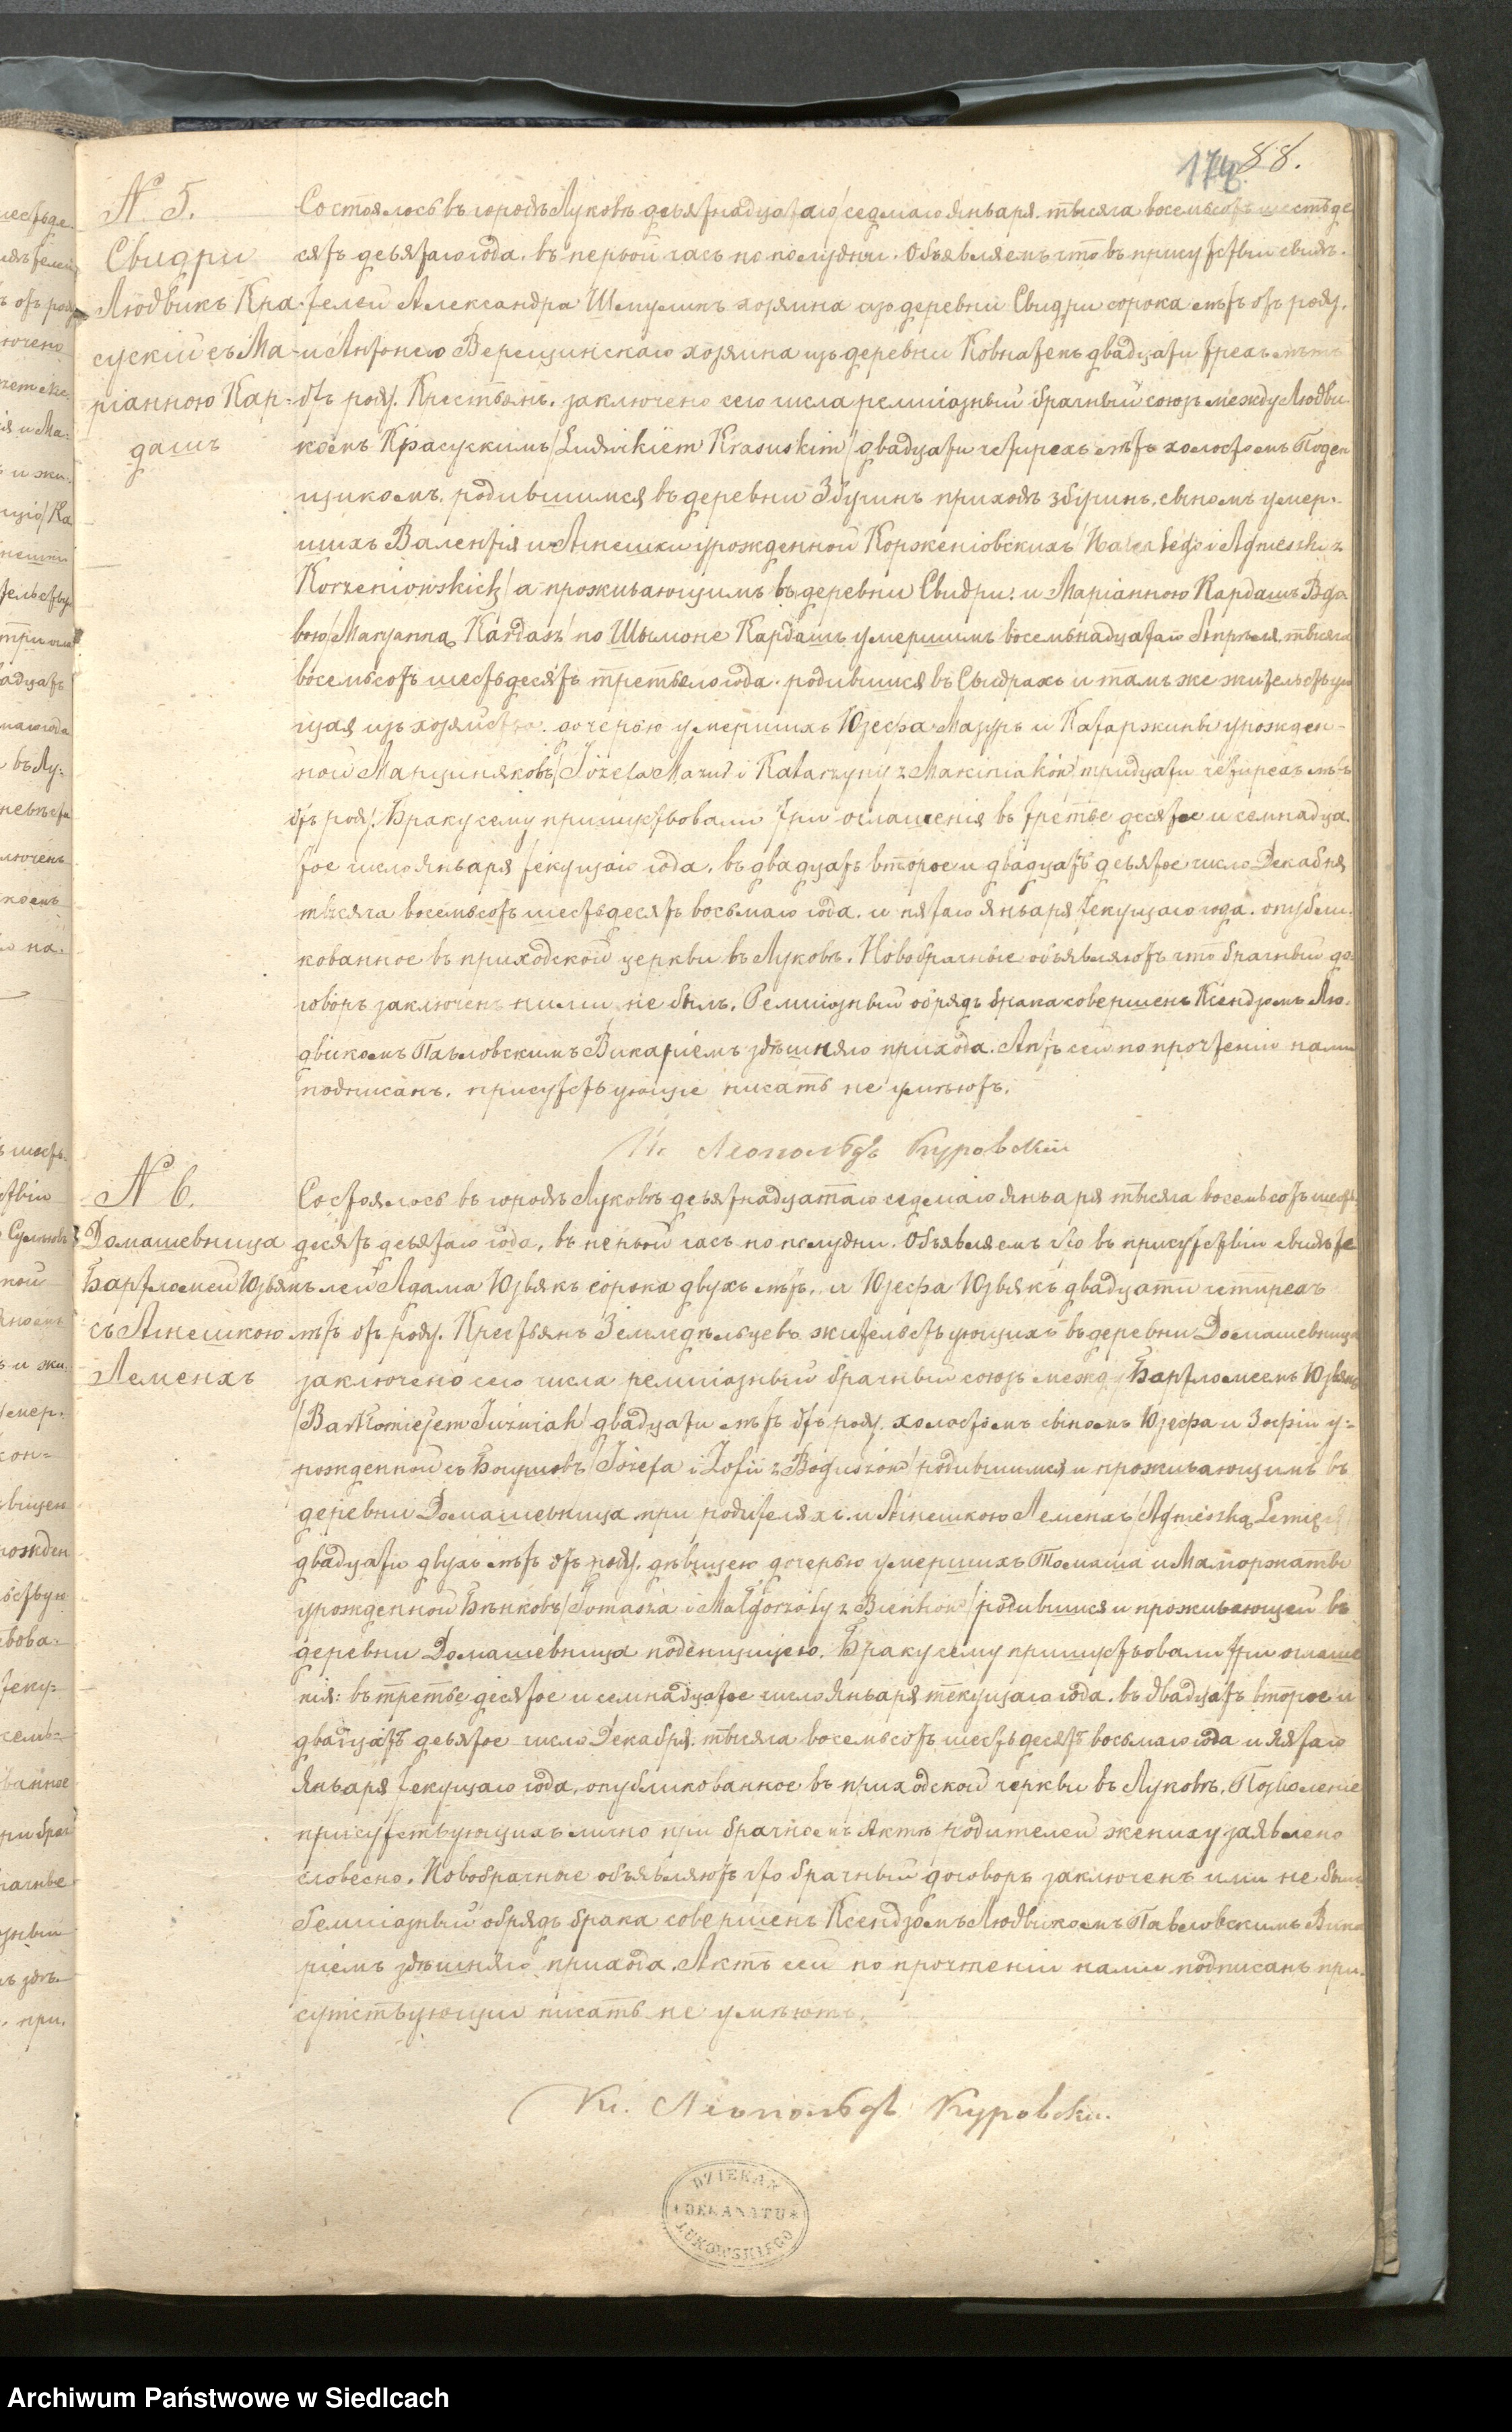 174. 88.
N. 5.
Свидри
Людвикъ Кра-
суский съ Ма-
ріанною Кар-
дашъ
Состоялось въ городѣ Луковѣ девятнадцатаго /седмаго Января тысяча восемьсотъ шестьде
сятъ девятаго года, въ первой часъ по полудни. Объявляемъ что въ присутствіи свидѣ-
телей Александра Шмуликъ хозяина изъ деревни Свидри сорока лѣтъ отъ роду,
и Антонего Верещинскаго хозяина изъ деревни Ковнатекъ двадцати трехъ лѣтъ
отъ роду. Крестьянъ. заключено сего числа религіозный брачный союзъ между Людви-
комъ Красускимъ /Ludwikiem Krasuskim/ двадцати четырехъ лѣтъ холостомъ Поден
щикомъ, родившимся въ деревни Збучинъ приходѣ збучинъ, сыномъ умер-
шихъ Валентія и Агнешки урожденной Корженіовскихъ /Walentego i Agnieszki z
Korzeniowskich/ а проживающимъ въ деревни Свидри: и Маріанною Кардашъ Вдо
вою /Maryanną Kardasz/ по Шымоне Кардашъ умершимъ восемьнадцатаго Апрѣля тысяча
восемьсотъ шестьдесятъ третьего года. родившися въ Свидрахъ и тамъ же жительствую
щая изъ хозяйства. дочерью умершихъ Юзефа Мазуръ и Катаржины урожден-
ной Марциняковъ /Józefa Mazur i Katarzyny z Marciniaków/ тридцати четырехъ лѣтъ
отъ роду. Браку сему пришествовали три оглашенія въ третье десятое и семнадца-
тое число Января текущаго года, въ двадцать второе и двадцать девятое число Декабря
тысяча восемьсотъ шестьдесятъ восьмаго года. и пятаго Января текущаго года. опубли-
кованное въ приходской церкви въ Луковѣ. Новобрачные объявляютъ что брачный до-
говоръ заключенъ ними не былъ. Религіозный обрядъ брака совершенъ Ксендзомъ Лю-
двикомъ Павловскимъ Викаріемъ здѣшняго прихода. Актъ сей по прочтеніи нами
подписанъ, присутствующіе писать не умѣютъ.
Кс. Леопольдъ Куровскій
N 6.
Домашевница
Бартломей Юзвякъ
съ Агнешкою
Леменхъ
Состоялось въ городѣ Луковѣ девятнадцатаго седмаго Января тысяча восемьсотъ шесть
десятъ девятаго года, въ первый часъ по полудни. Объявляемъ что въ присутствіи свидѣте
лей Адама Юзвякъ сорока двухъ лѣтъ, и Юзефа Юзвякъ двадцати четырехъ
лѣтъ отъ роду. Крестьянъ Земледѣльцевъ жительствующихъ въ деревни Домашевница
заключено сего числа религіозный брачный союзъ между Бартломеемъ Юзвякъ
/Bartłomiejem Juźwiak/ двадцати лѣтъ отъ роду. холостомъ сыномъ Юзефа и Зофіи у-
рожденной съ Богушовъ /Józefa i Zofii z Boguszów/ родившимся и проживающимъ въ
деревни Домашевница при родителяхъ. и Агнешкою Леменхъ /Agnieszką Lemięch/
двадцати двухъ лѣтъ отъ роду. дѣвицею дочерью умершихъ Томаша и Малгоржаты
урожденной Бѣнковъ /Tomasza i Małgorzaty z Bieńków/ родившися и проживающей въ
деревни Домашевница поденщицею. Браку сему пришествовали три оглаше
нія: въ третье десятое и семнадцатое число Января текущаго года. въ двадцать второе и
двадцать девятое число Декабря тысяча восемьсотъ шестьдесятъ восьмаго года и пятаго
Января текущаго года, опубликованное въ приходской церкви въ Луковѣ. Позволеніе
присутствующихъ лично при брачномъ Актѣ родителей жениху заявлено
словесно. Новобрачные объявляютъ что брачный договоръ заключенъ ими не былъ
Религіозный обрядъ брака совершенъ Ксендзомъ Людвикомъ Павловскимъ Вика
ріемъ здѣшняго прихода. Актъ сей по прочтеніи нами подписанъ при-
сутствующіи писать не умѣютъ.
Кс. Леопольдъ Куровски.
DZIEKAN
DEKANATU
ŁUKOWSKIEGO
Archiwum Państwowe w Siedlcach